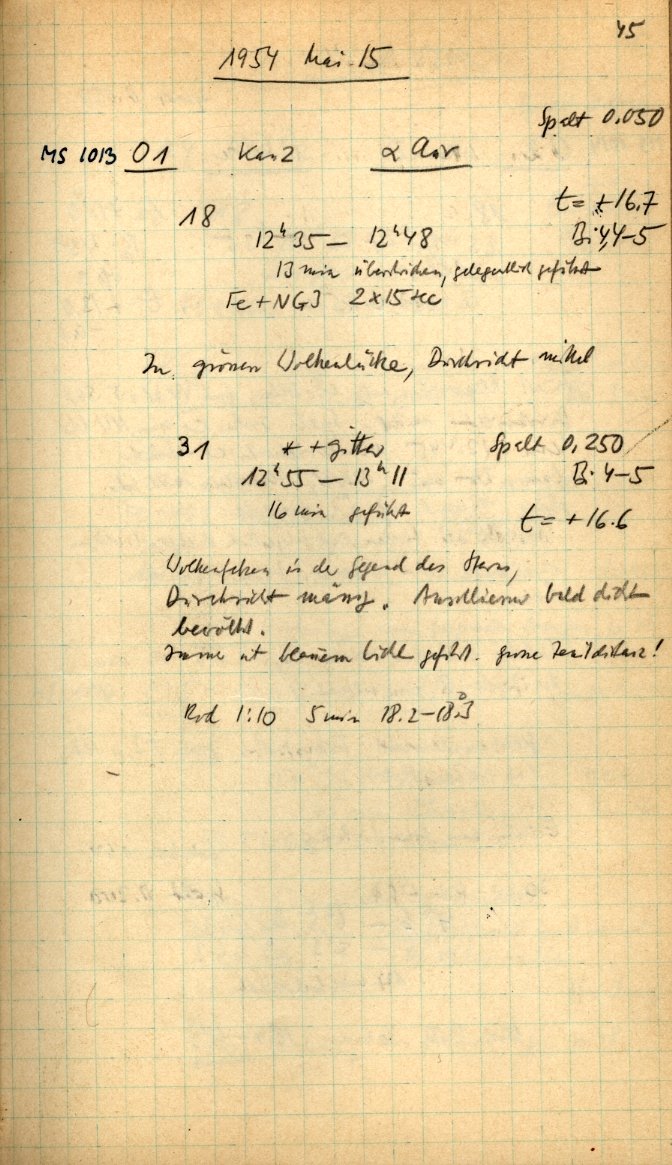 45
1954 Mai 15
Spalt 0.050
MS 1013 O1 Kas 2 α Aur
t = +16.7
18
12ʰ35 — 12ʰ48 Bi 4,4-5
13 min überstrichen, gelegentlich geführt
Fe + NG3 2x15 sec
In grossen Wolkenlücke, Durchsicht mittel
31 * + gitter Spalt 0,250
12ʰ55 — 13ʰ11 Bi 4-5
16 min geführt
t = +16.6
Wolkenfetzen in der Gegend des Sterns,
Durchsicht mässig. Anschliessend bald dicht
bewölkt.
Immer mit blauem Licht geführt. grosse Zenitdistanz!
Rod 1:10 5 min 18.2 — 18.3